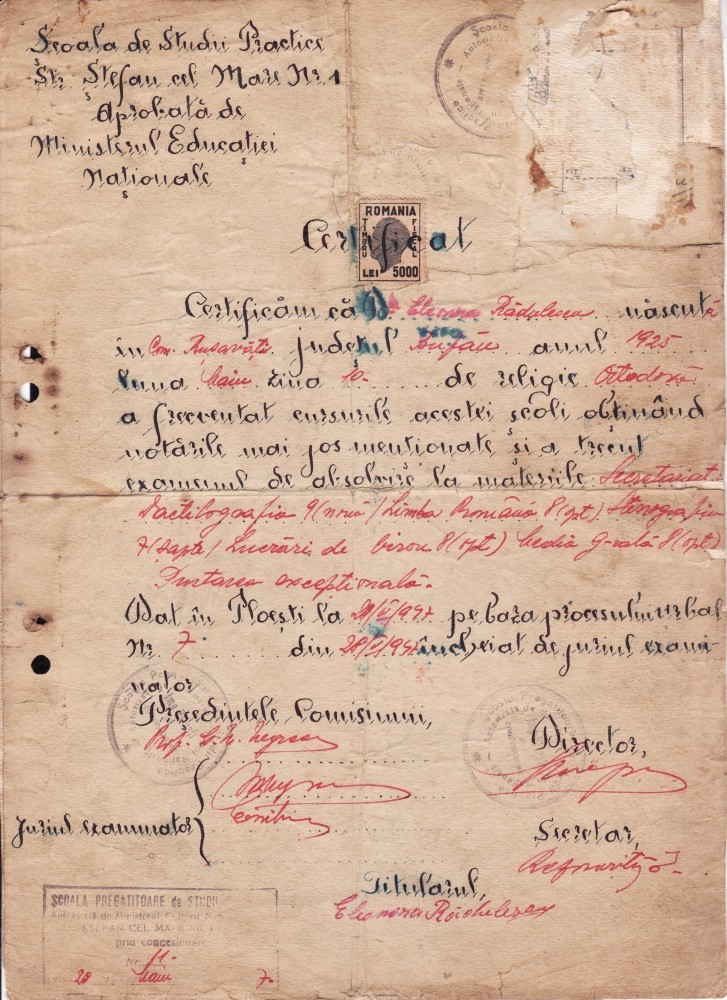 Școala de Studii Practice
Str. Ștefan cel Mare Nr. 1
Aprobată de
Ministerul Educației
Naționale
Școala
Practice
ROMANIA
TIMBRU FISCAL
LEI 5000
Certificat
Certificăm că D Eleonora Rădulescu născută
în Com. Rusavăți județul Buzău anul 1925
luna Maiu ziua 10 de religie Ortodoxă
a frecventat cursurile acestei școli obținând
notările mai jos mentionate și a trecut
examenul de absolvire la materiile Secretariat
Dactilografia 9 (nouă) Limba Română 8 (opt) Stenografia
7 (șapte) Lucrări de birou 8 (opt) Media g-rală 8 (opt)
Purtarea excepțională.
Dat în Ploești la pe baza procesului verbal
Nr. 7 din încheiat de juriul exami
nator
Președintele Comisiunii,
Prof.
Director,
Juriul examinator
Secretar,
Titularul,
Eleonora Rădulescu
ȘCOALA PREGATITOARE de STUDII
de Ministerul Culturii
ȘTEFAN CEL MARE No.
prin concesionare
Nr. 11.
28 Maiu 7